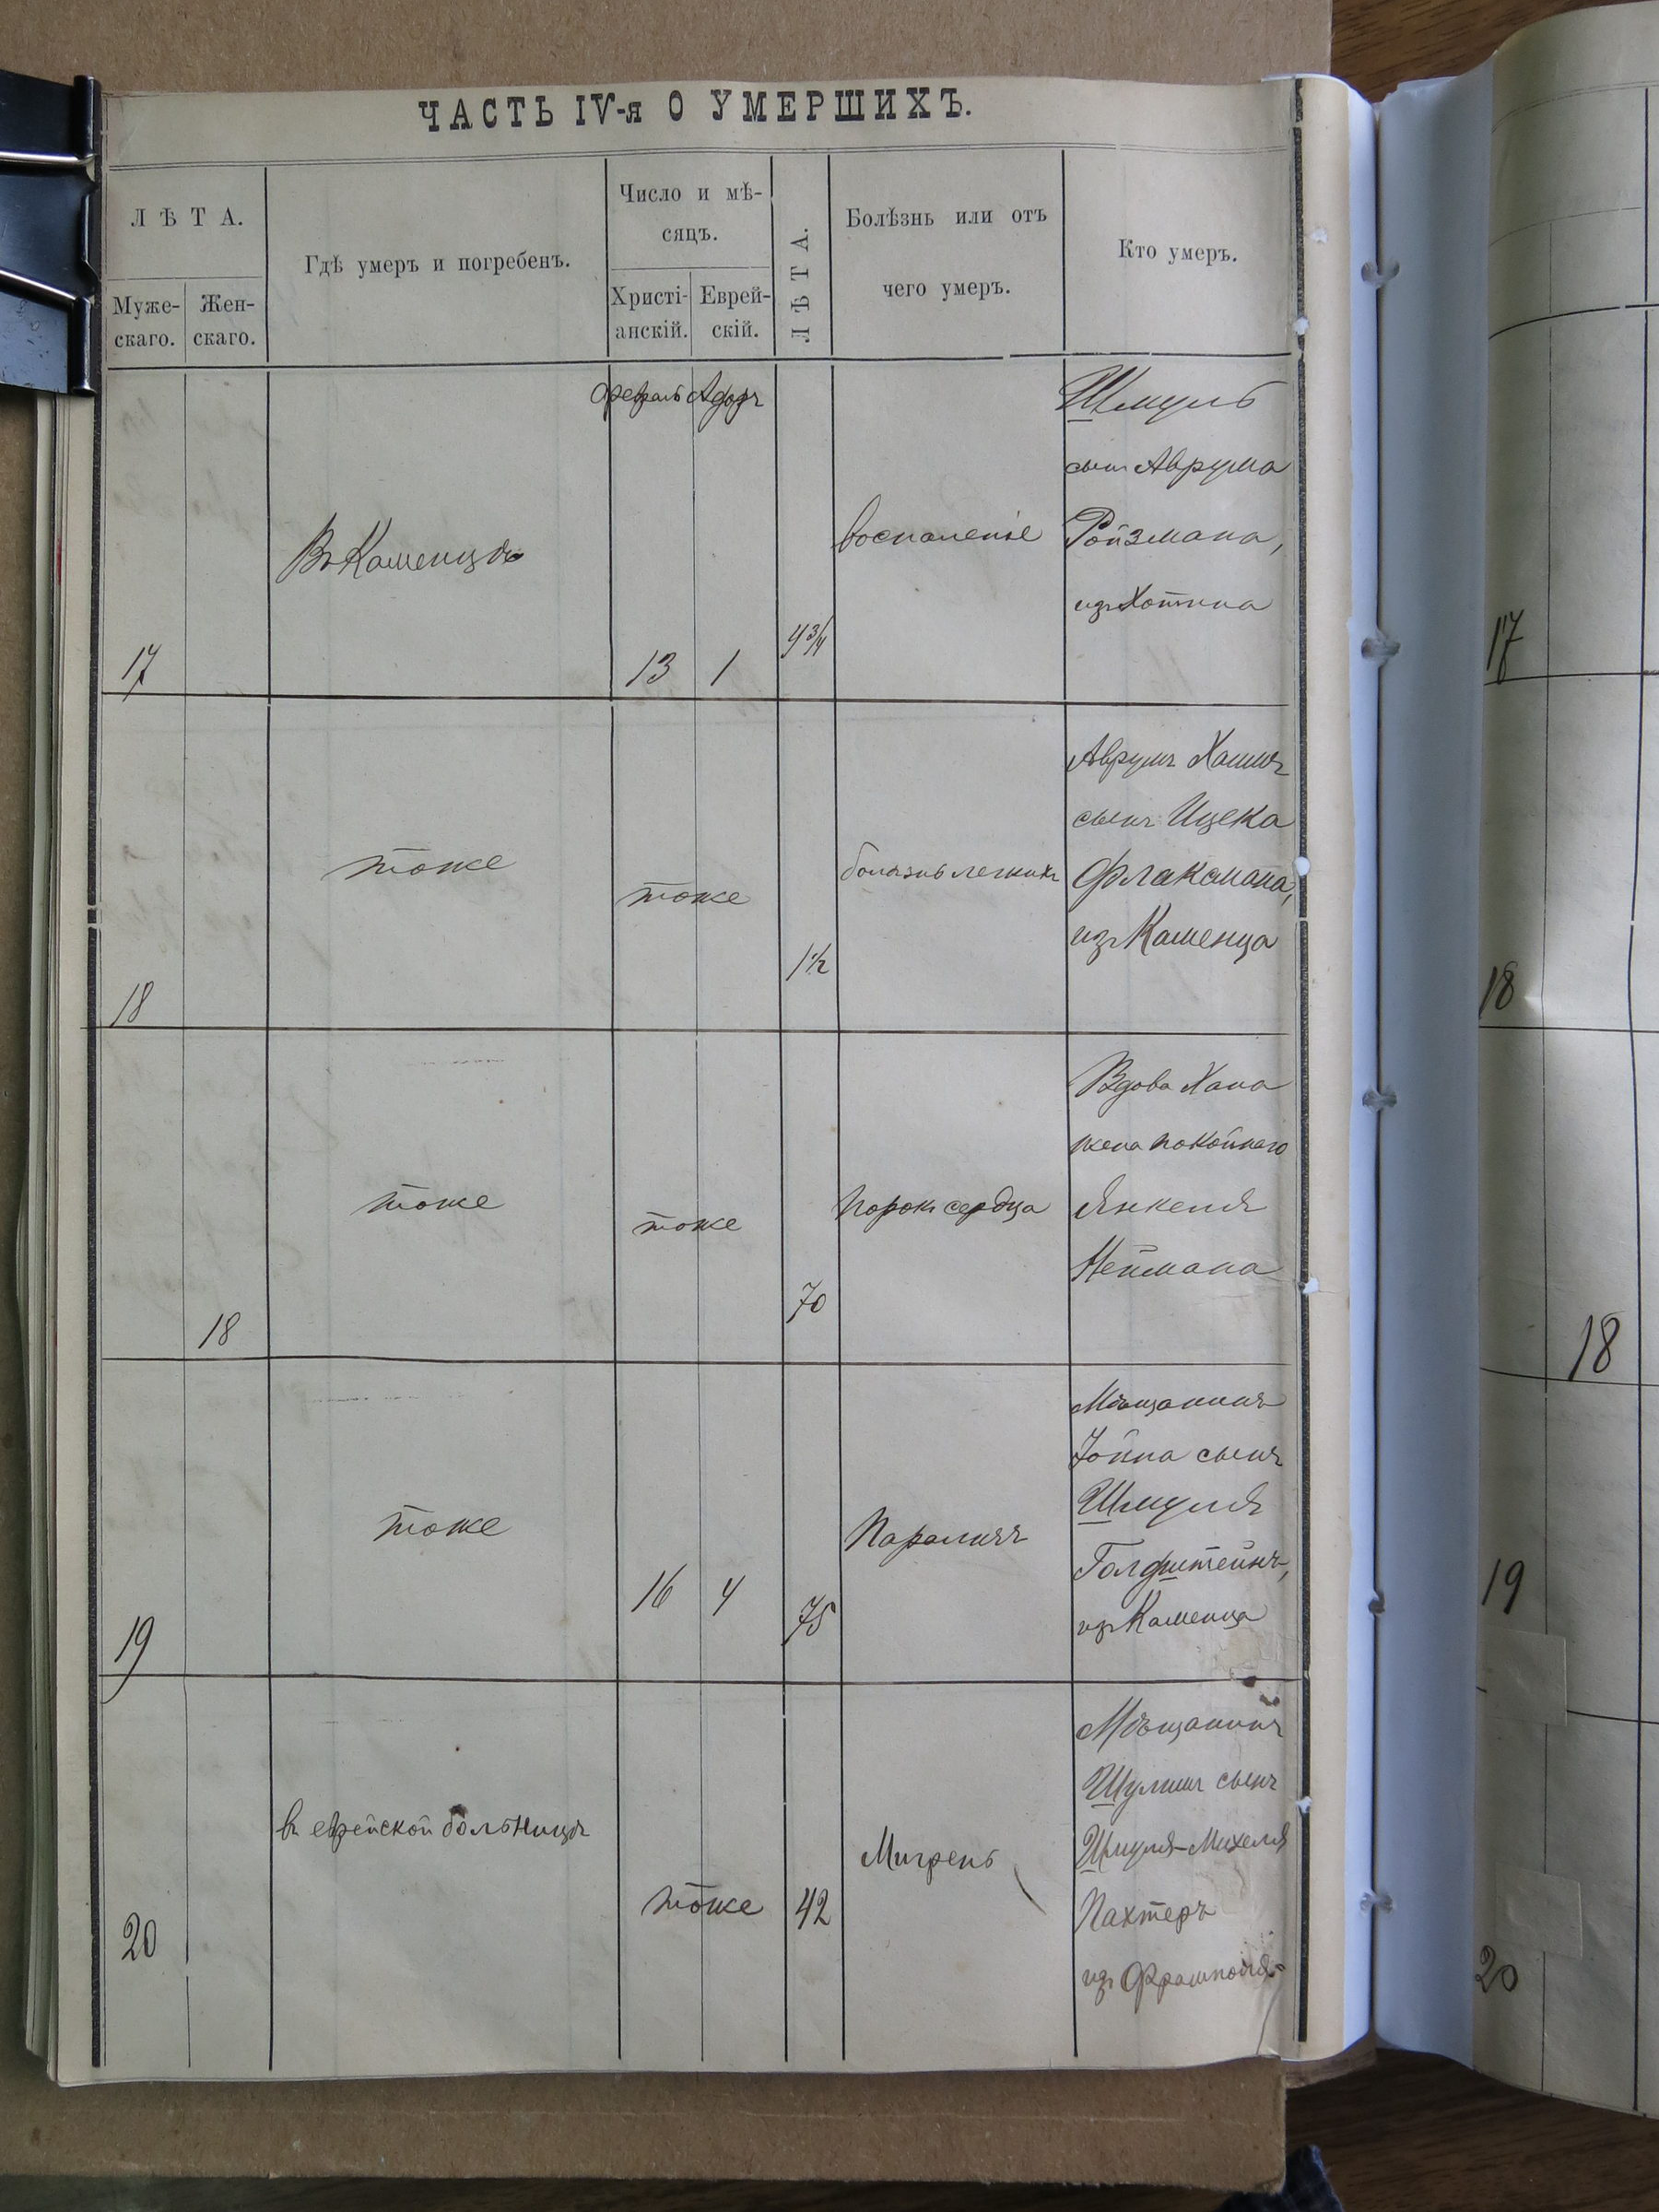 ЧАСТЬ IV-я О УМЕРШИХЪ.
Л Ѣ Т А.
Муже-
скаго.
Жен-
скаго.
Гдѣ умеръ и погребенъ.
Число и мѣ-
сяцъ.
Христі-
анскій.
Еврей-
скій.
Л Ѣ Т А.
Болѣзнь или отъ
чего умеръ.
Кто умеръ.
Февраль Адаръ
17
Въ Каменцѣ
13 1
4 3/4
воспаленіе
Шмуль
сынъ Аврума
Ройзмана,
изъ Хотина
17
18
тоже
тоже
1 1/2
болѣзнь легкихъ
Аврумъ Хаимъ
сынъ Ицека
Флаксмана,
изъ Каменца
18
18
тоже
тоже
70
Порокъ сердца
Вдова Хана
жена покойнаго
Янкеля
Неймана
18
19
тоже
16 4
75
Параличъ
Мѣщанинъ
Іойна сынъ
Шмуля
Голдштейнъ,
изъ Каменца
19
20
въ еврейской больницѣ
тоже
42
Мигрень
Мѣщанинъ
Шулимъ сынъ
Шмуля-Михеля
Пахтеръ
изъ Фрамполя
20